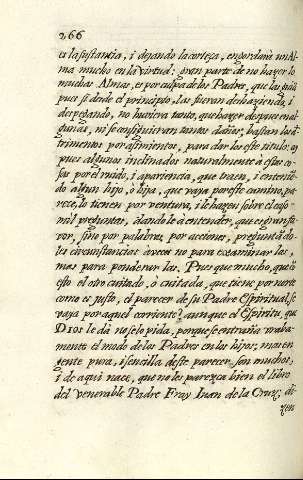 266
a la sustancia, i dejando la corteza, engordara un Al-
ma mucho en la virtud; gran parte de no hazer lo
muchas Almas, es por culpa de los Padres, que las guiã
pues si desde el principio, las fueran deshaziendo, i
despegando, no huviera tanto, que hazer despues en al-
gunas, ni se consiguieran tantos daños; bastan la
trimentos por asimientos, para dar los este titulo;
pues algunos inclinados naturalmente à estas co-
sas por el ruido, i apariencia, que traen, i enteniẽ-
do algun hijo, ò hija, que vaya por este camino, pa-
rece, lo tienen por ventura, i le hazen sobre el caso
mil preguntas, dando le à entender, que es gran fa-
vor, sino por palabras, por acciones, preguntãdo-
les circunstancias àveces no para examinar las,
mas para ponderar las. Pues que mucho, que si
esto el otro cuitado, ò cuitada, que tiene por norte
como es justo, el parecer de su Padre Espiritual, se
vaya por aquel corriente? aunque el Espiritu, que
Dios le dà no se lo pida, porque se entraña traba-
mente el modo de los Padres en los hijos; mas en
gente pura, i sencilla deste parecer son muchos,
i de aqui nace, que no les parezca bien el libro
del venerable Padre Fray Iuan de la Cruz, di-
zen